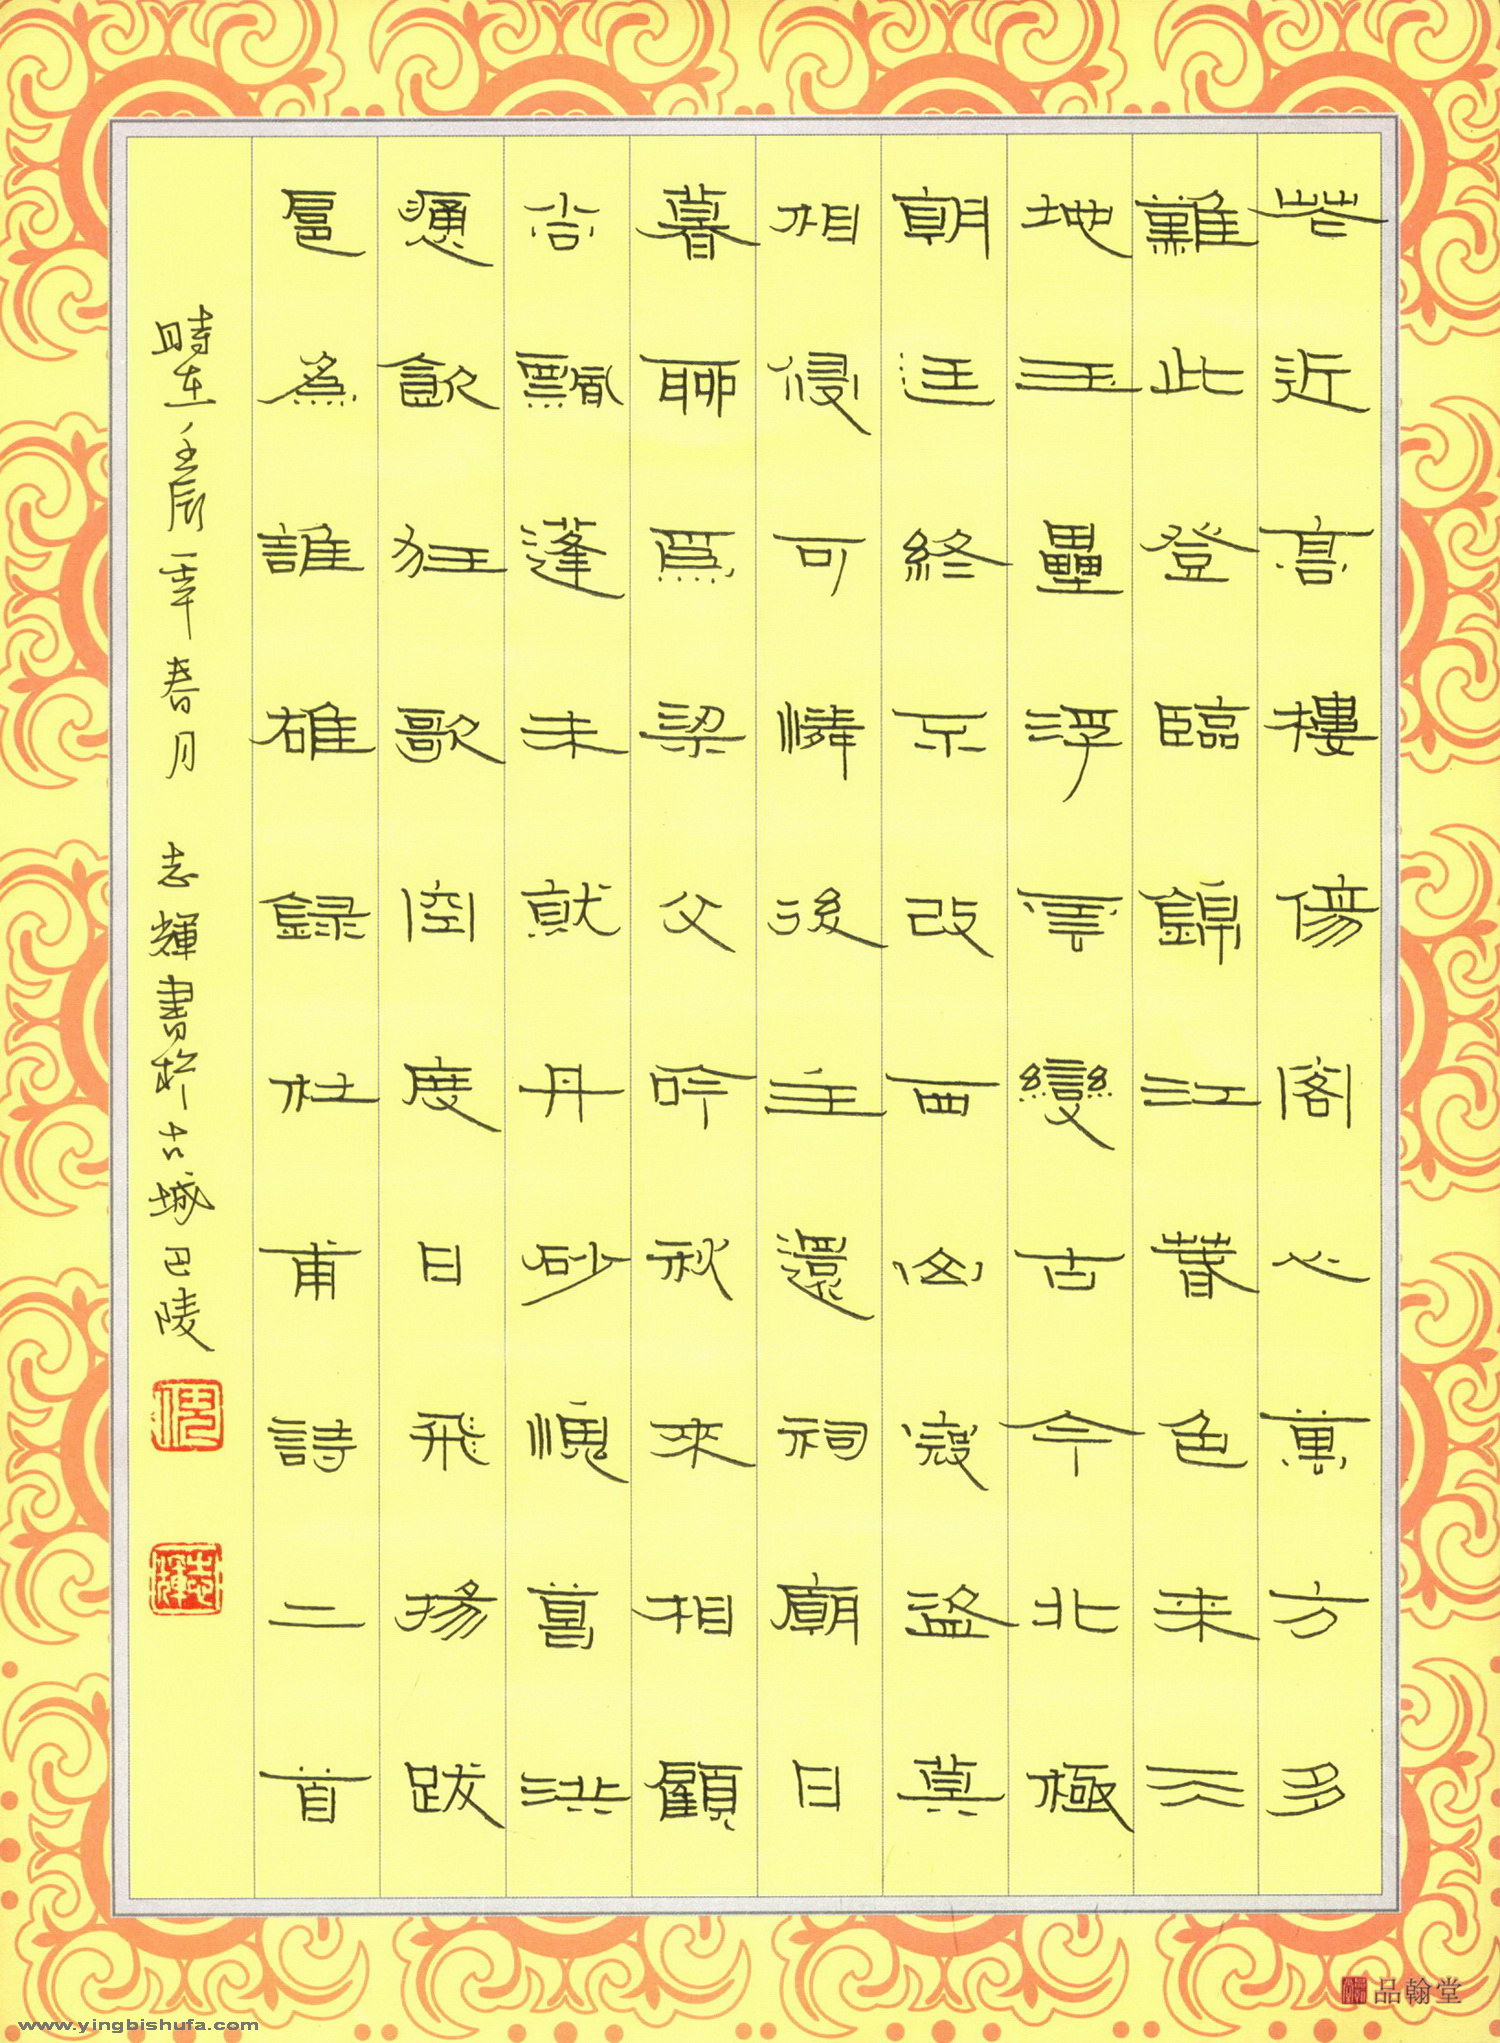 花近高樓傷客心萬方多
難此登臨錦江春色來天
地玉壘浮雲變古今北極
朝廷終不改西山寇盜莫
相侵可憐後主還祠廟日
暮聊為梁父吟秋來相顧
尚飄蓬未就丹砂愧葛洪
痛飲狂歌空度日飛揚跋
扈為誰雄録杜甫詩二首
時在壬辰年春月 志輝書於古城巴陵
志輝
品翰堂
www.yingbishufa.com